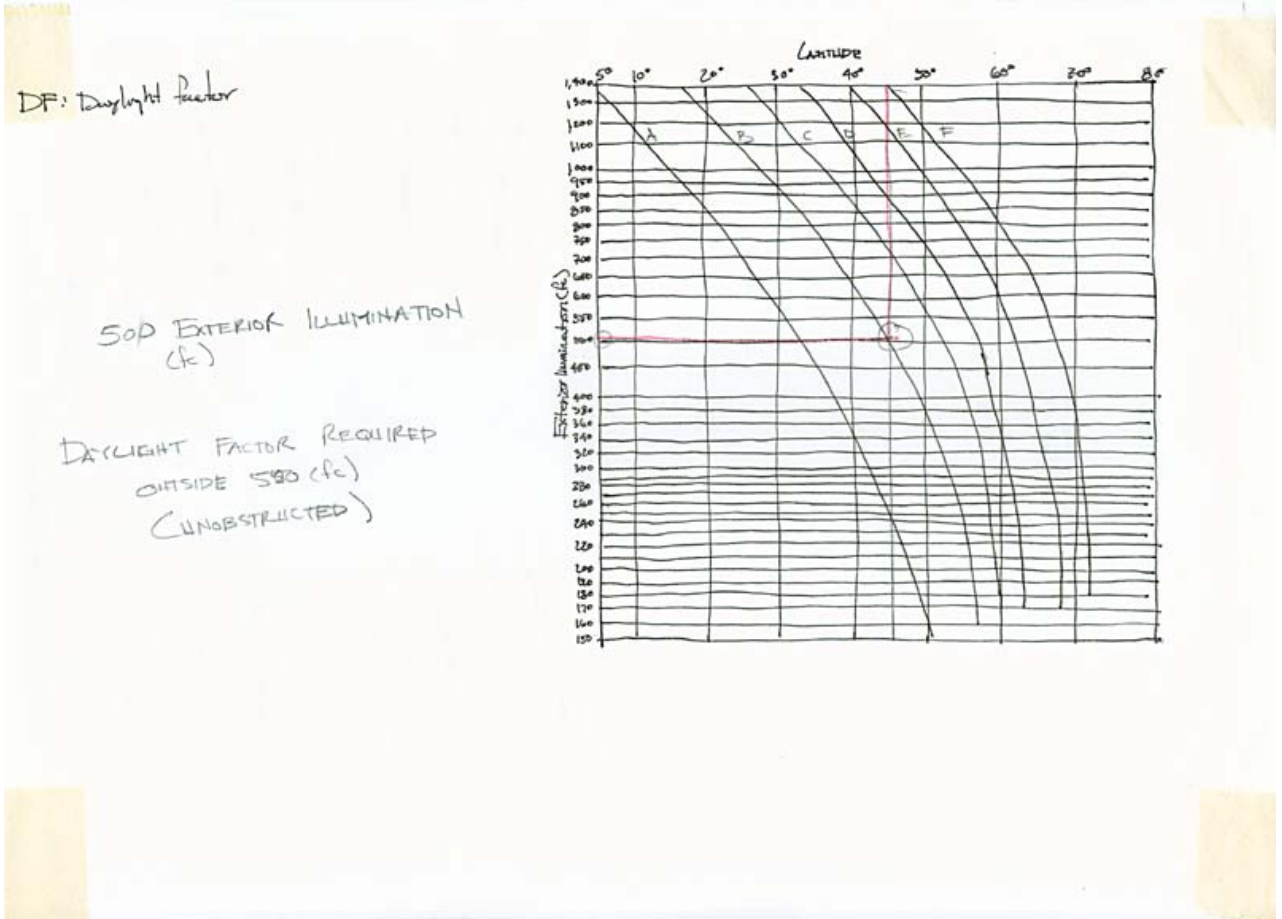 DF: Daylight factor
500 EXTERIOR ILLUMINATION
(fc)
DAYLIGHT FACTOR REQUIRED
OUTSIDE 500 (fc)
(UNOBSTRUCTED)
LATITUDE
5° 10° 20° 30° 40° 50° 60° 70° 80
A B C D E F
Exterior Illumination (fc)
1300
1200
1100
1000
950
900
850
800
750
700
600
550
500
450
400
380
360
340
320
300
280
260
240
220
200
180
170
160
150